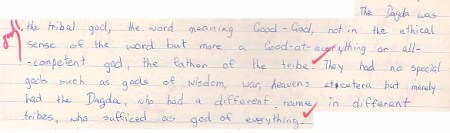 The Dagda was
the tribal god, the word meaning Good-God, not in the ethical
sense of the word but more a Good-at-everything or all-
-competent god, the father of the tribe. They had no special
gods such as gods of wisdom, war, heavens etcetera but merely
had the Dagda, who had a different name in different
tribes, who sufficed as god of everything.